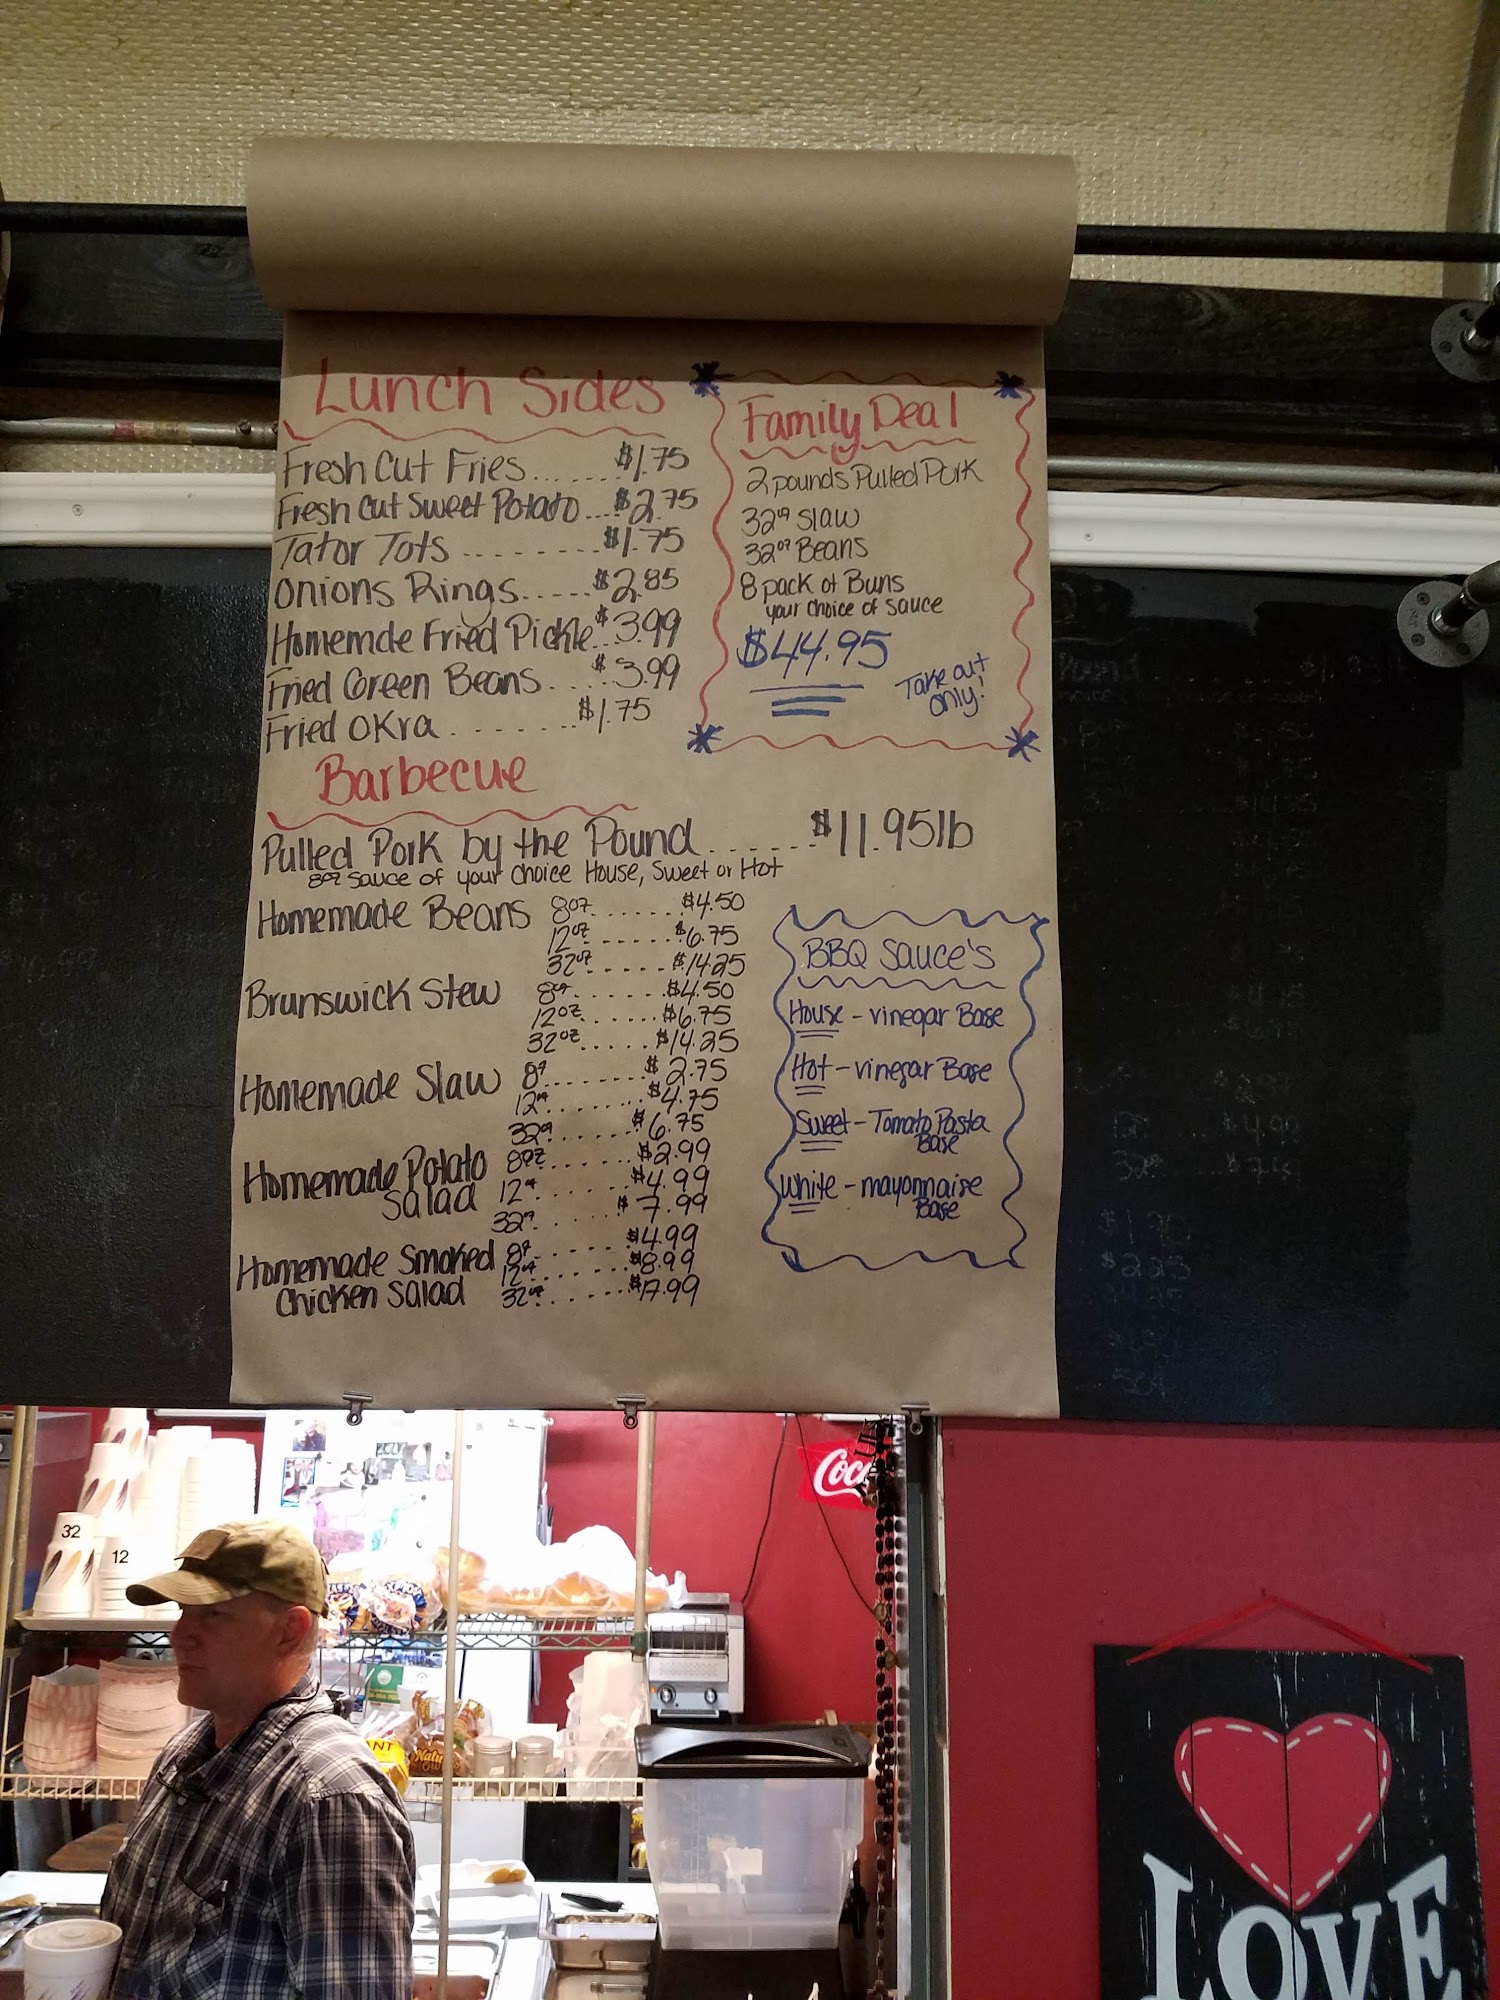 Lunch Sides
Fresh Cut Fries....... $1.75
Fresh Cut Sweet Potato... $2.75
Tator Tots ........ $1.75
Onions Rings..... $2.85
Homemde Fried Pickle... $3.99
Fried Green Beans.... $3.99
Fried Okra ....... $1.75
Family Deal
2 pounds Pulled Pork
32oz Slaw
32oz Beans
8 pack of Buns
your choice of sauce
$44.95
Take out
only!
Barbecue
Pulled Pork by the Pound....... $11.95lb
8oz Sauce of your choice House, Sweet or Hot
Homemade Beans 8oz....... $4.50
12oz...... $6.75
32oz...... $14.25
Brunswick Stew 8oz....... $4.50
12oz...... $6.75
32oz..... $14.25
Homemade Slaw 8oz....... $2.75
12oz....... $4.75
32oz....... $6.75
Homemade Potato 8oz...... $2.99
Salad 12oz...... $4.99
32oz...... $7.99
Homemade Smoked 8oz...... $4.99
12oz...... $8.99
Chicken Salad 32oz...... $17.99
BBQ Sauce's
House - vinegar Base
Hot - vinegar Base
Sweet - Tomato Pasta
Base
White - mayonnaise
Base
Pound
$2.25
32
12
Coc
LOVE